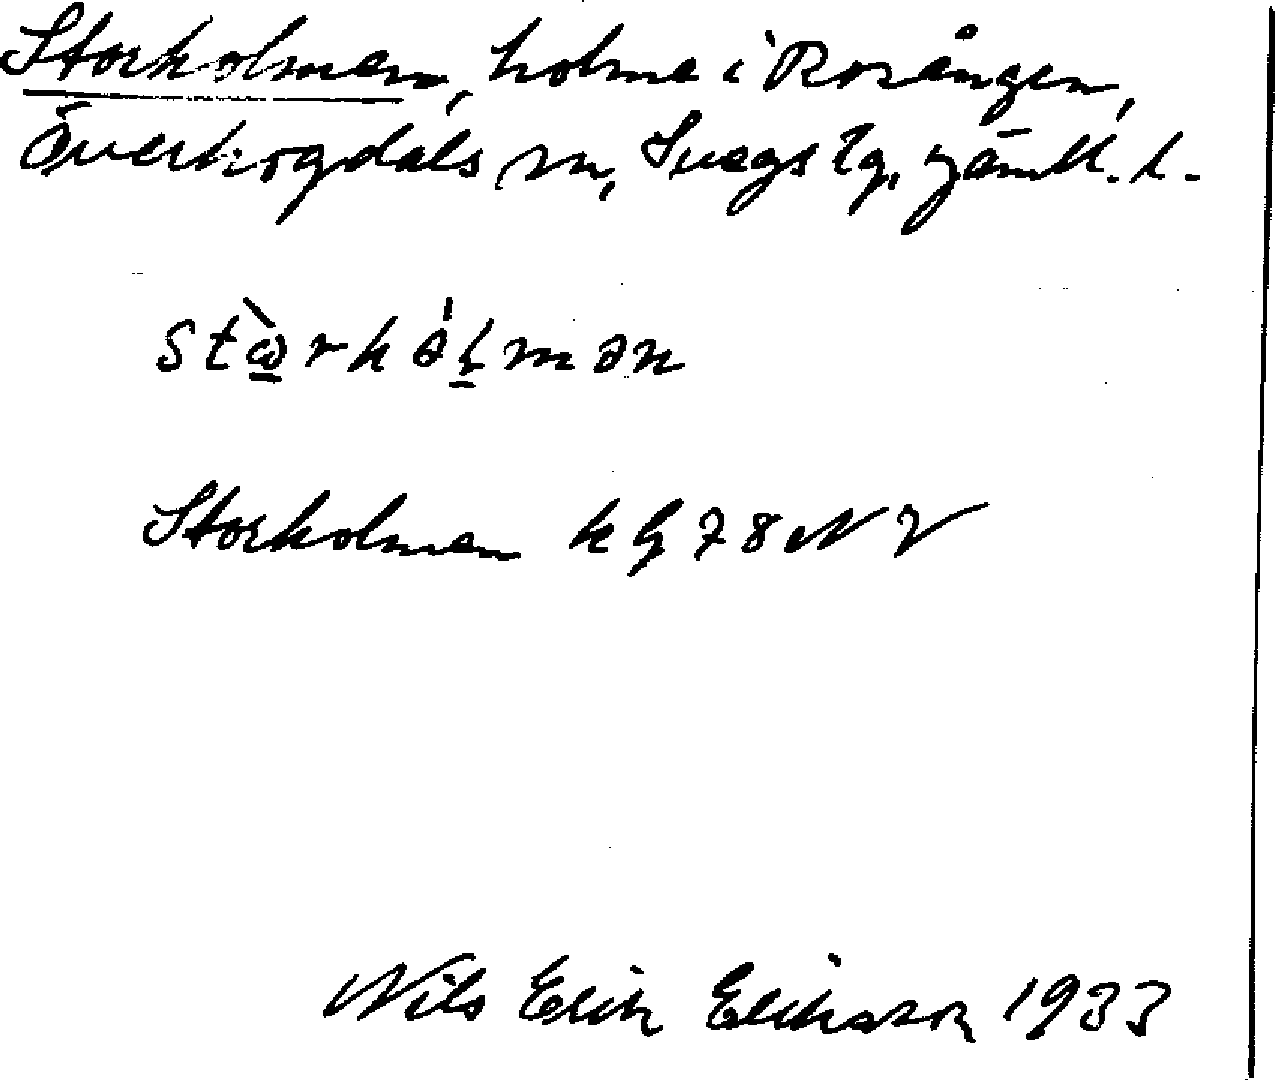 Storholmen, holme i Rosången,
Överhogdals sn, Svegs tg, Jämtl. l.
stὼ̱rhɵ́ḻmən
Storholmen kg 78 NV
Nils Erik Eriksson 1933